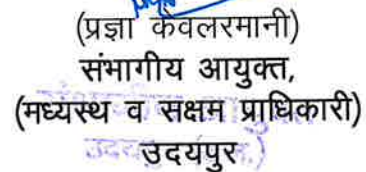 (प्रज्ञा केवलरमानी)
संभागीय आयुक्त,
(मध्यस्थ व सक्षम प्राधिकारी)
उदयपुर